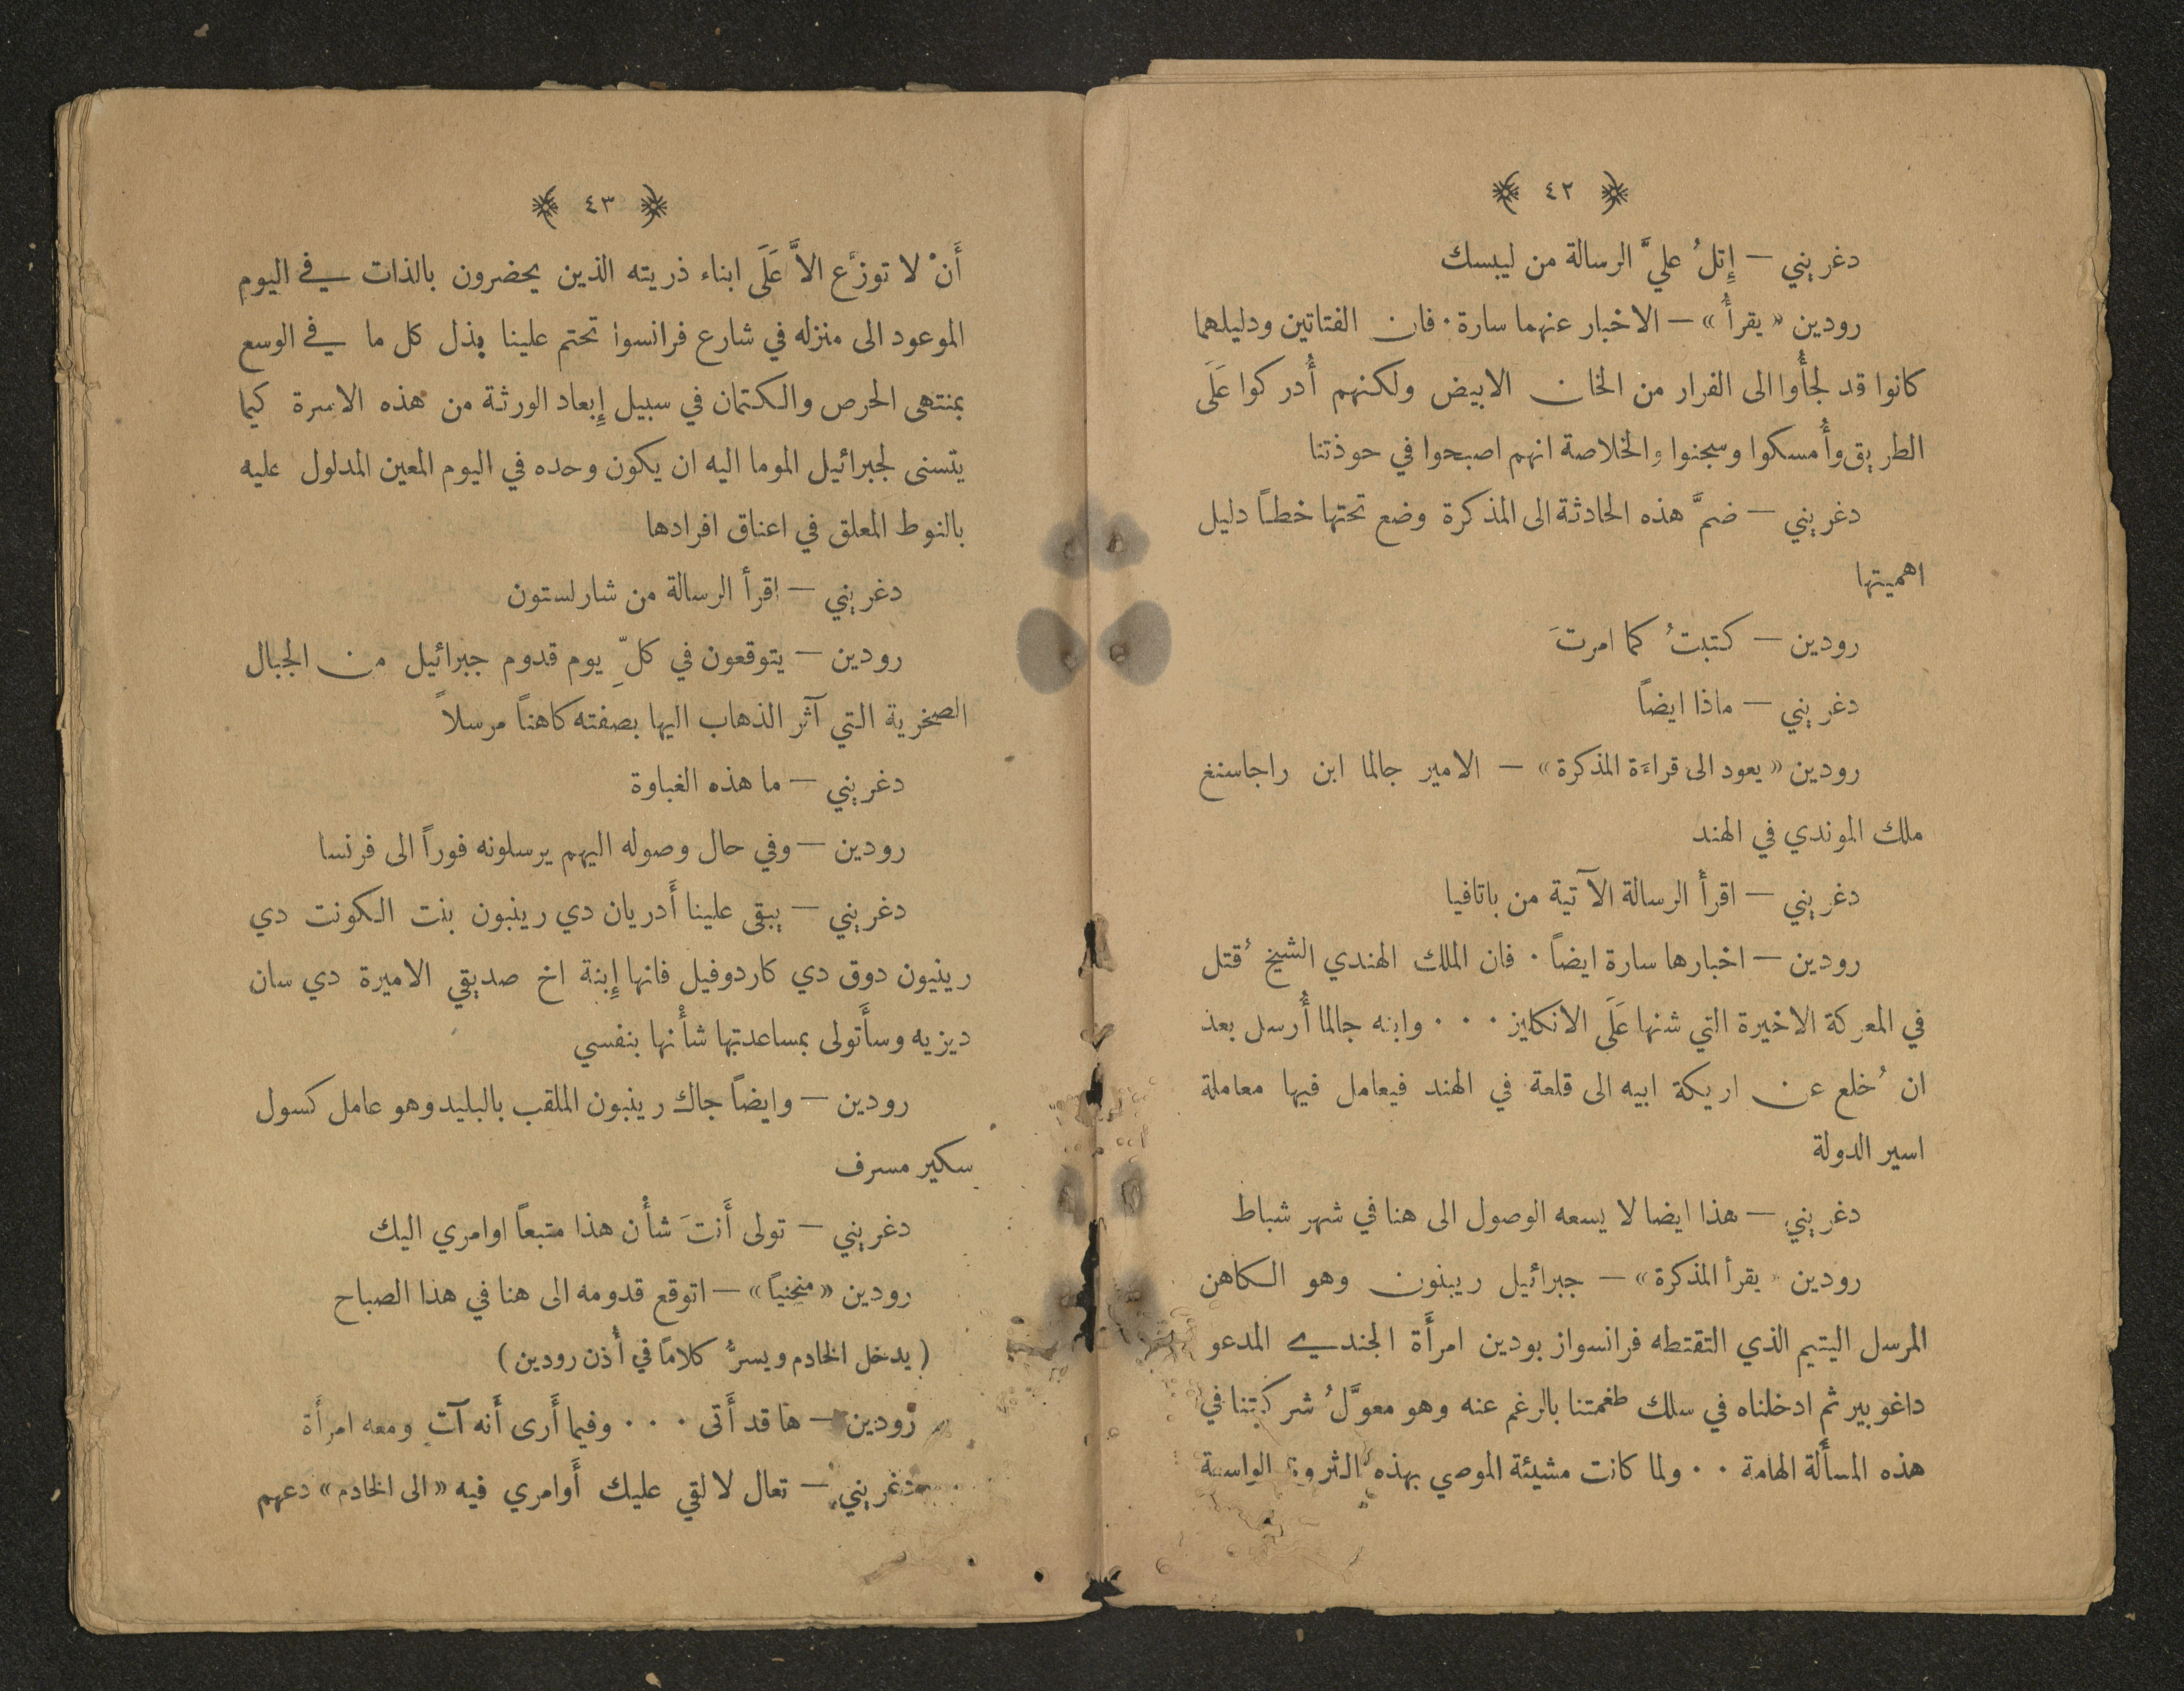 ﴿ ٤٢ ﴾
دغريني — إِتلُ عليَّ الرسالة من ليبسك
رودين «يقرأُ» — الاخبار عنهما سارة. فان الفتاتين ودليلهما
كانوا قد لجأُوا الى الفرار من الخان الابيض ولكنهم أُدركوا عَلَى
الطريق وأُمسكوا وسجنوا والخلاصة انهم اصبحوا في حوذتنا
دغريني — ضمَّ هذه الحادثة الى المذكرة وضع تحتها خطاً دليل
اهميتها
رودين — كتبتُ كما امرتَ
دغريني — ماذا ايضاً
رودين «يعود الى قراءَة المذكرة» — الامير جالما ابن راجاسنغ
ملك الموندي في الهند
دغريني — اقرأ الرسالة الآتية من باتافيا
رودين — اخبارها سارة ايضاً. فان الملك الهندي الشيخ ُقتل
في المعركة الاخيرة التي شنها عَلَى الانكليز... وابنه جالما أُرسل بعد
ان ُخلع عن اريكة ابيه الى قلعة في الهند فيعامل فيها معاملة
اسير الدولة
دغريني — هذا ايضا لا يسعه الوصول الى هنا في شهر شباط
رودين «يقرأ المذكرة» — جبرائيل ريبنون وهو الكاهن
المرسل اليتيم الذي التقتطه فرانسواز بودين امرأَة الجندي المدعو
داغوبير ثم ادخلناه في سلك طغمتنا بالرغم عنه وهو معوَّلُ شركتنا في
هذه المسأَلة الهامة.. ولما كانت مشيئة الموصي بهذه الثروة الواسعة
﴿ ٤٣ ﴾
أَنْ لا توزَّع الاَّ عَلَى ابناء ذريته الذين يحضرون بالذات في اليوم
الموعود الى منزله في شارع فرانسوا تحتم علينا بذل كل ما في الوسع
بمنتهى الحرص والكتمان في سبيل إِبعاد الورثة من هذه الاسرة كيما
يتسنى لجبرائيل الموما اليه ان يكون وحده في اليوم المعين المدلول عليه
بالنوط المعلق في اعناق افرادها
دغريني — اقرأ الرسالة من شارلستون
رودين — يتوقعون في كلّ يوم قدوم جبرائيل من الجبال
الصخرية التي آثر الذهاب اليها بصفته كاهناً مرسلاً
دغريني — ما هذه الغباوة
رودين — وفي حال وصوله اليهم يرسلونه فوراً الى فرنسا
دغريني — يبقى علينا أَدريان دي رينبون بنت الكونت دي
رينيون دوق دي كاردوفيل فانها إِبنة اخ صديقي الاميرة دي سان
ديزيه وسأَتولى بمساعدتها شأْنها بنفسي
رودين — وايضاً جاك رينبون الملقب بالبليد وهو عامل كسول
سكير مسرف
دغريني — تولى أَنتَ شأْن هذا متبعاً اوامري اليك
رودين «منحنياً» — اتوقع قدومه الى هنا في هذا الصباح
(يدخل الخادم ويسرُّ كلاماً في أُذن رودين)
رودين — ها قد أَتى... وفيما أَرى أَنه آتٍ ومعه امرأَة
دغريني — تعال لالقي عليك أَوامري فيه «الى الخادم» دعهم